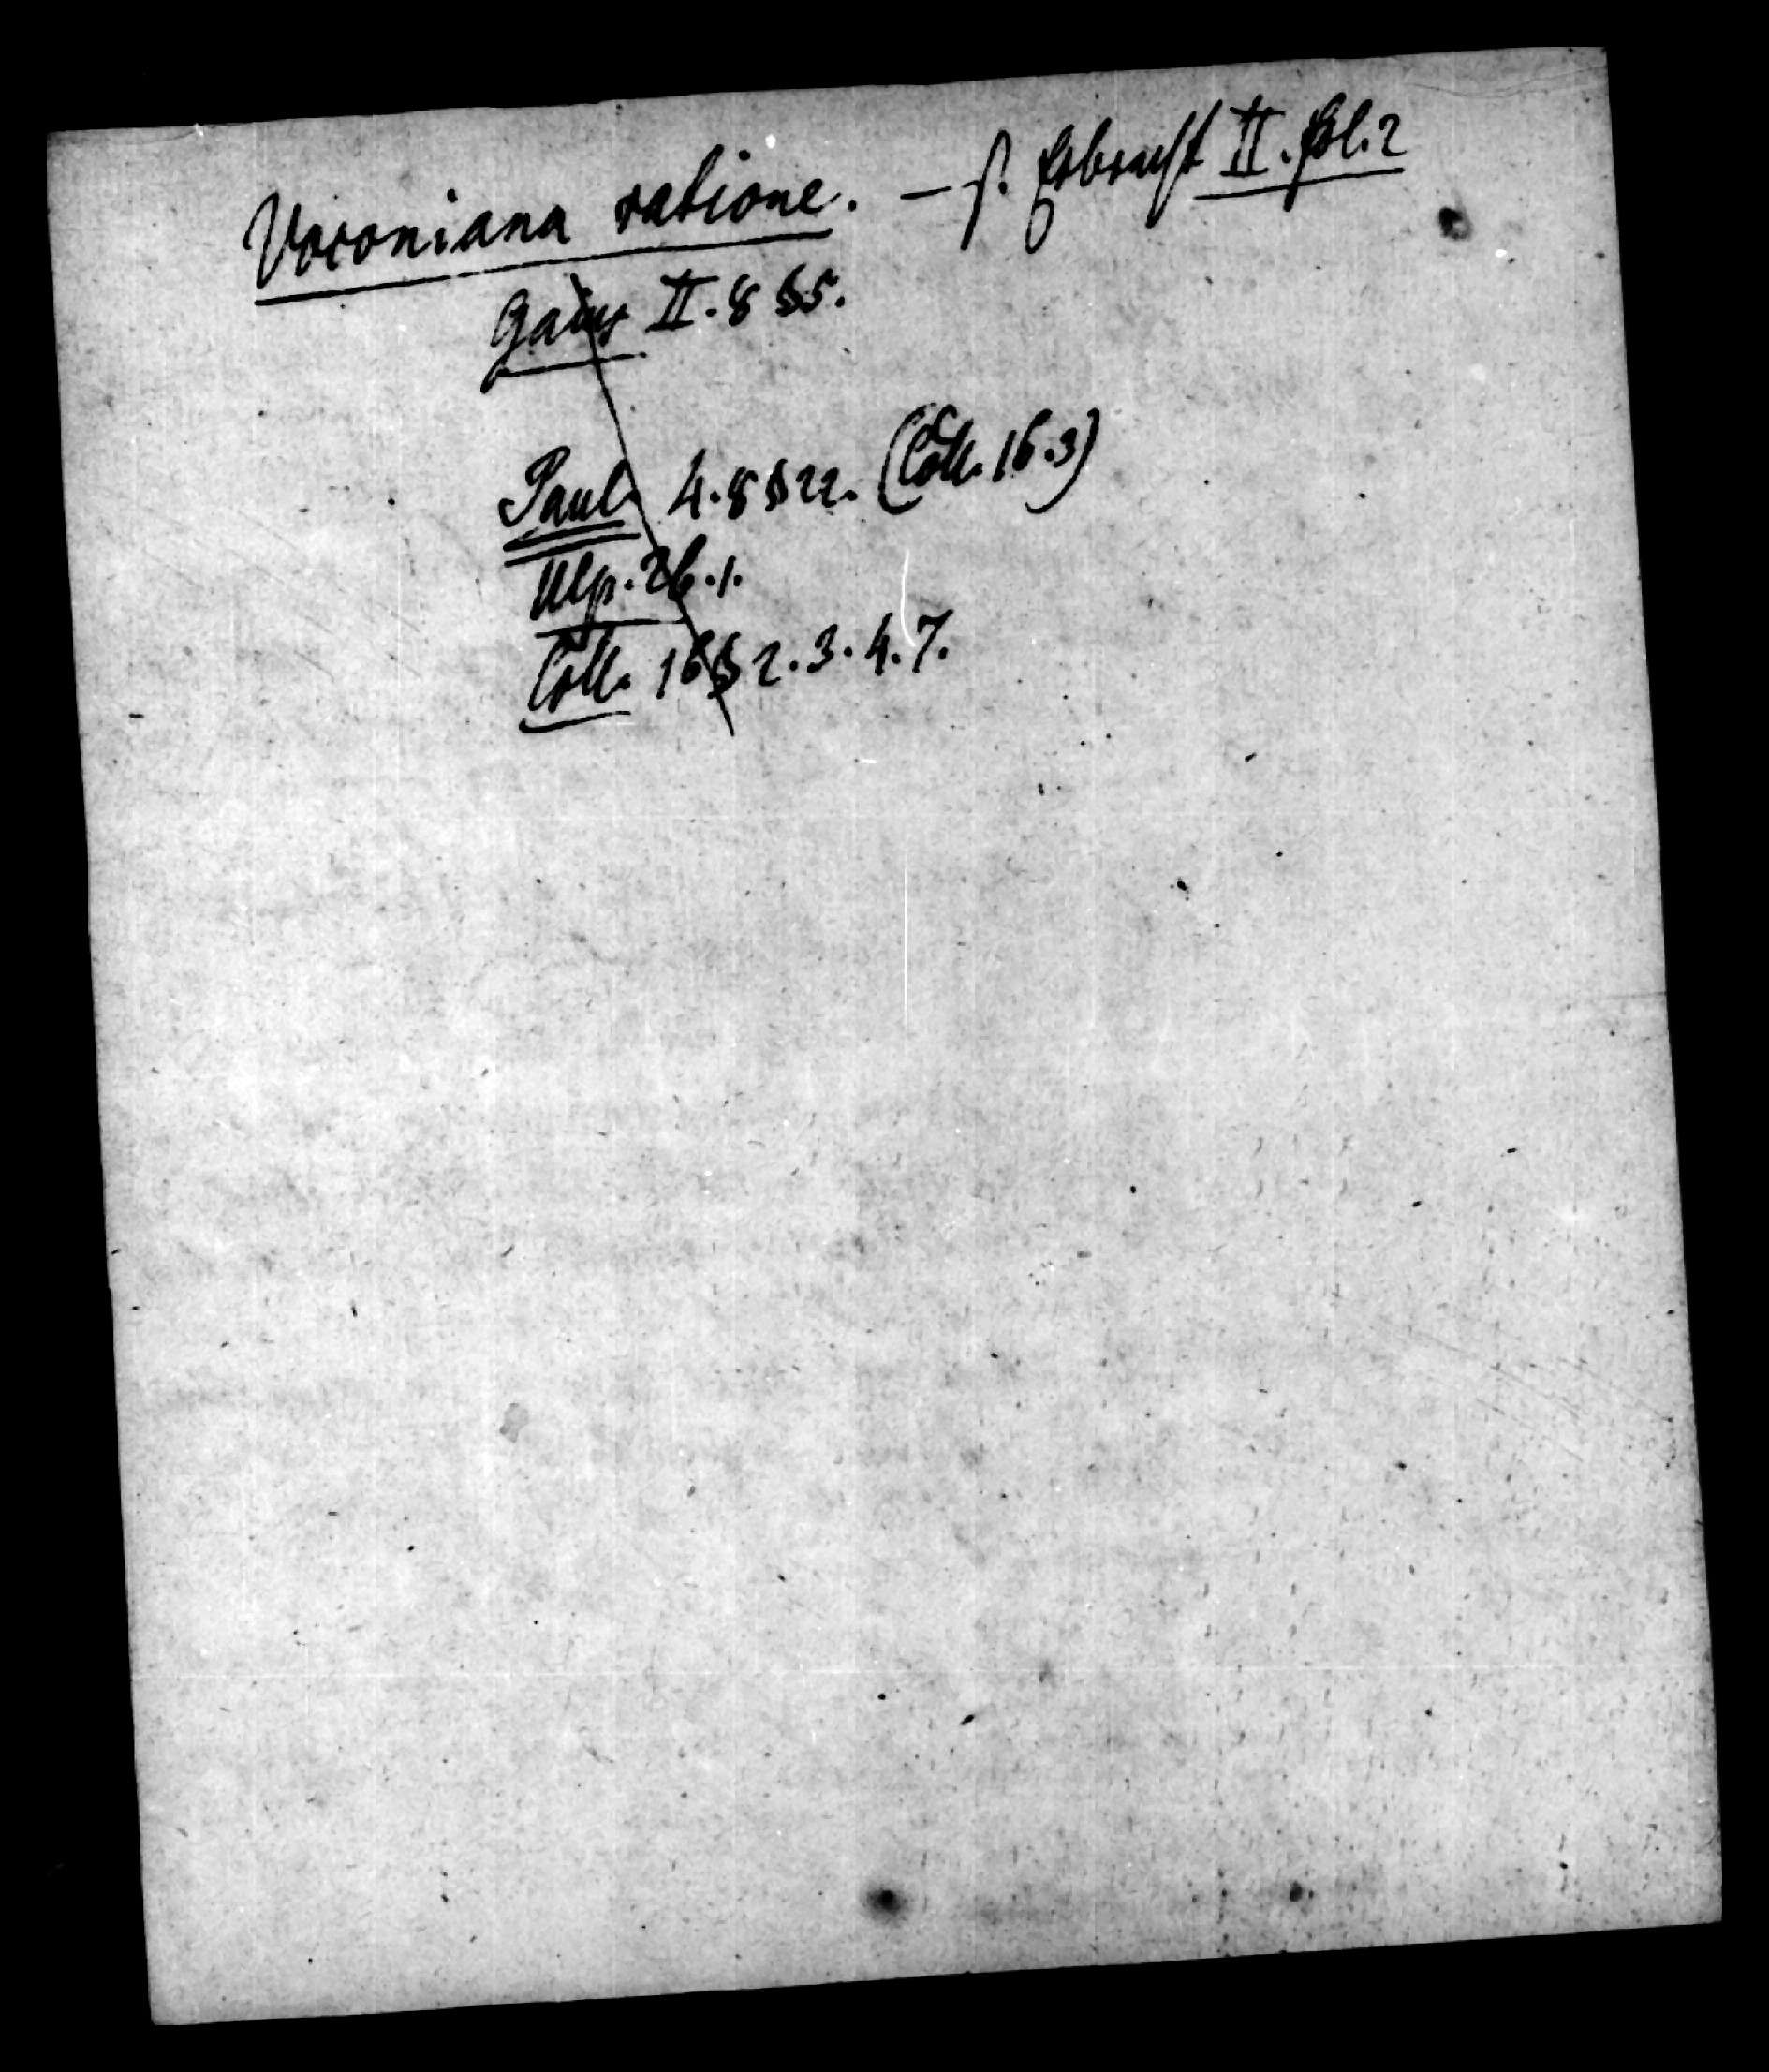 Voconiana ratione. — s. Erbrecht II. fol. 2
Gaius II. 8 § 5.
Paul. 4. 8 § 22. (Coll. 16. 3)
Ulp. 26. 1.
Coll. 16 § 2. 3. 4. 7.